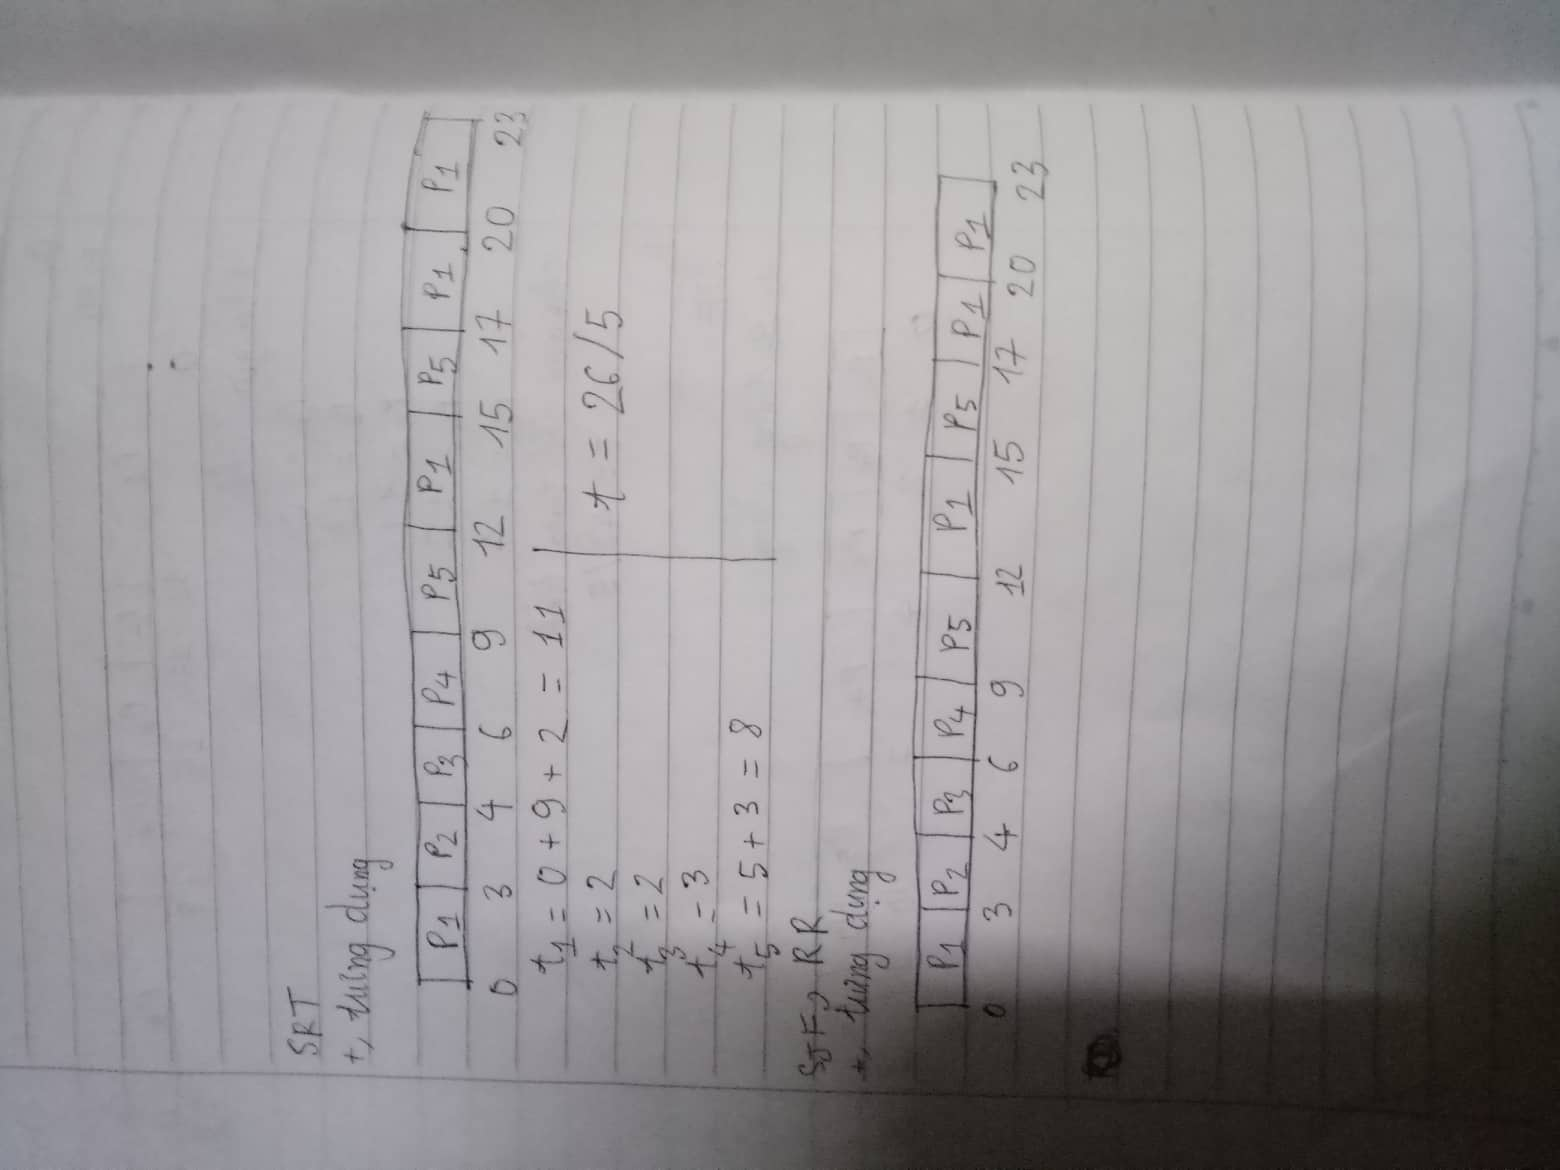 SRT
+, trưng dụng
P1 | P2 | P3 | P4 | P5 | P1 | P5 | P1 | P1
0 3 4 6 9 12 15 17 20 23
t1 = 0 + 9 + 2 = 11
t2 = 2
t3 = 2
t4 = 3
t5 = 5 + 3 = 8
t = 26/5
SJF, RR
+, trưng dụng
P1 | P2 | P3 | P4 | P5 | P1 | P5 | P1 | P1
0 3 4 6 9 12 15 17 20 23